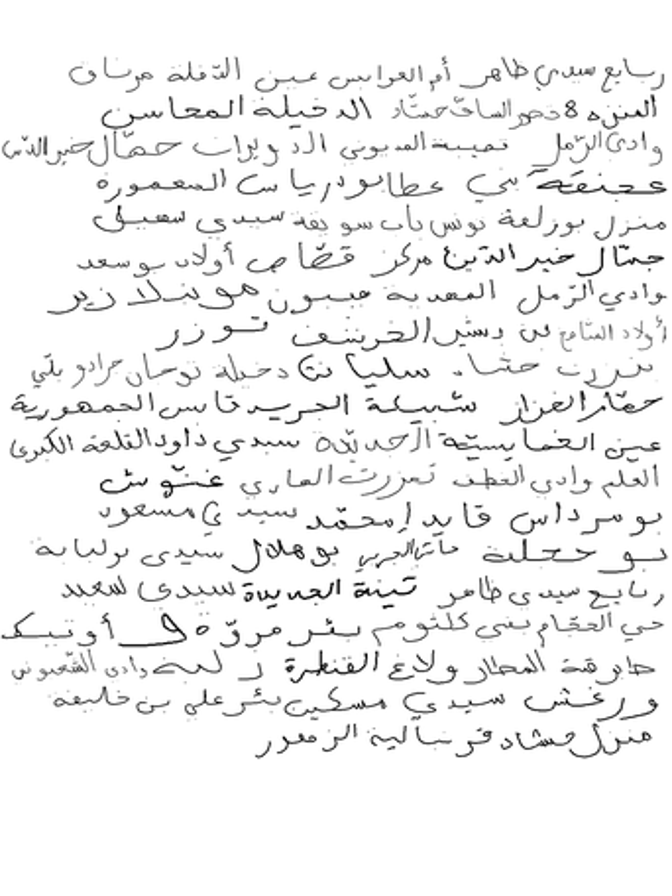 ربايع سيدي ظاهر أم العرايس عين الدفلة مرناق
المنزه 8 قصور الساف حشّاد الدخيلة المحاسن
وادي الرّمل قصيبة المديوني الدويرات جمّال خير الدين
بني عطا بودرياس المعمورة
منزل بوزلفة تونس باب سويقة سيدي سهيل
جمّال خير الدّين مركز قصّاص أولاد بوسعد
وادي الرّمل المهدية هيبون مونبلازير
أولاد الشامخ بن بشير الخريشف توزر
بنزرت حشاد سليانة دخيلة توجان جرادو بلّي
حفّار الفزاز شبيكة الجريد قابس الجمهورية
عين الغمايسيّة الحديدة سيدي داود القلعة الكبرى
العلم وادي الغطف تمزرت الهاري غنّوش
بومرداس قايد امحمّد سيدي مسعود
بوحجلة ماتلين الجريد بوهلال سيدي بولبابة
ربايع سيدي ظاهر تينة الجديدة سيدي سعيد
حي الحجّام بني كلثوم بئر مروّة أوتيك
طابرقة المطار ولاغ القنطرة وادي الشعبوني
ورغش سيدي مسكين بئر علي بن خليفة
منزل حشاد قرنبالية الزهور